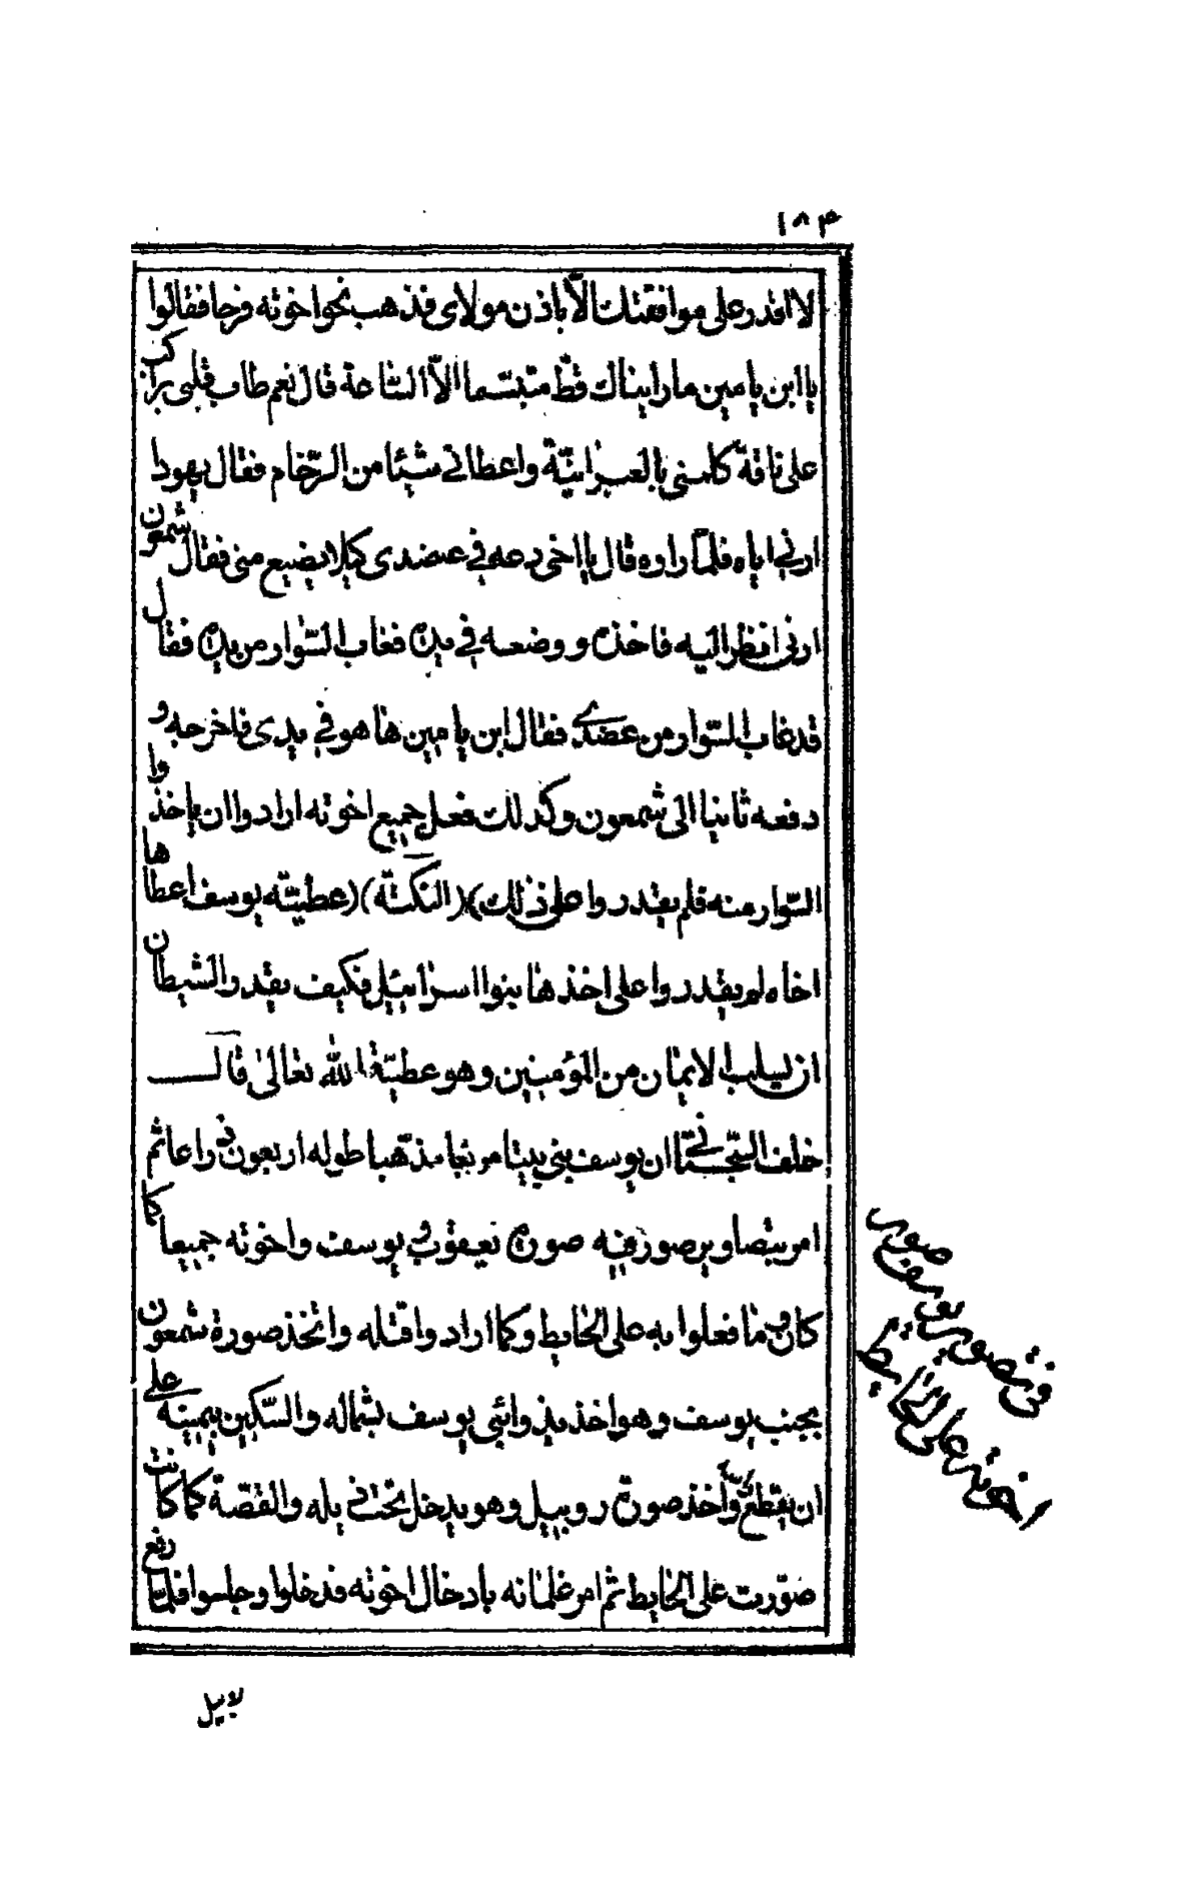 ١٨٤
لا اقدر على موافقتك الّا باذن مولاى فذهب نحو اخوته فرحا فقالوا
يا ابن يامين ما رايناك قطّ متبسّما الّا السّاعة قال نعم طاب قلبى براكب
على ناقة كلمنى بالعبرانيّة واعطانى شيئا من الرّخام فقال يهودا
ارنى اياه فلمّا راوه قال يا اخى دعه فى عضدى كيلا يضيع منى فقال شمعون
ارنى انظر اليه فاخذه ووضعه فى يده فغاب السّوار من يده فقال
قد غاب السّوار من عضدى فقال ابن يامين ها هو فى يدى فاخرجه و
دفعه ثانيا الى شمعون وكذلك فعل جميع اخوته ارادوا ان ياخذوا
السّوار منه فلم يقدروا على ذلك) (النكتة) (عطيّة يوسف اعطاها
اخاه لم يقدروا على اخذها بنوا اسرائيل فكيف يقدر الشيطان
ان يسلب الايمان من المؤمنين وهو عطيّة الله تعالى قال
خلف السّجستانى ان يوسف بنى بيتا مربعا مذهّبا طوله اربعون ذراعا ثم
امر بتصاوير صور فيه صورة يعقوب و يوسف واخوته جميعا كما
كان و ما فعلوا به على الحايط وكما ارادوا قتله واتخذ صورة شمعون
بجنب يوسف وهو اخذ بذوائبى يوسف بشماله والسّكين بيمينه على
ان يقطع راسه واخذ صورة روبيل وهو يدخل تحتانى يله والقصّة كما كانت
صوّرت على الحايط ثم امر غلمانه بادخال اخوته فدخلوا وجلسوا فلمّا رفع
فى تصوير يوسف صور
اخوته على الحايط
لابيل